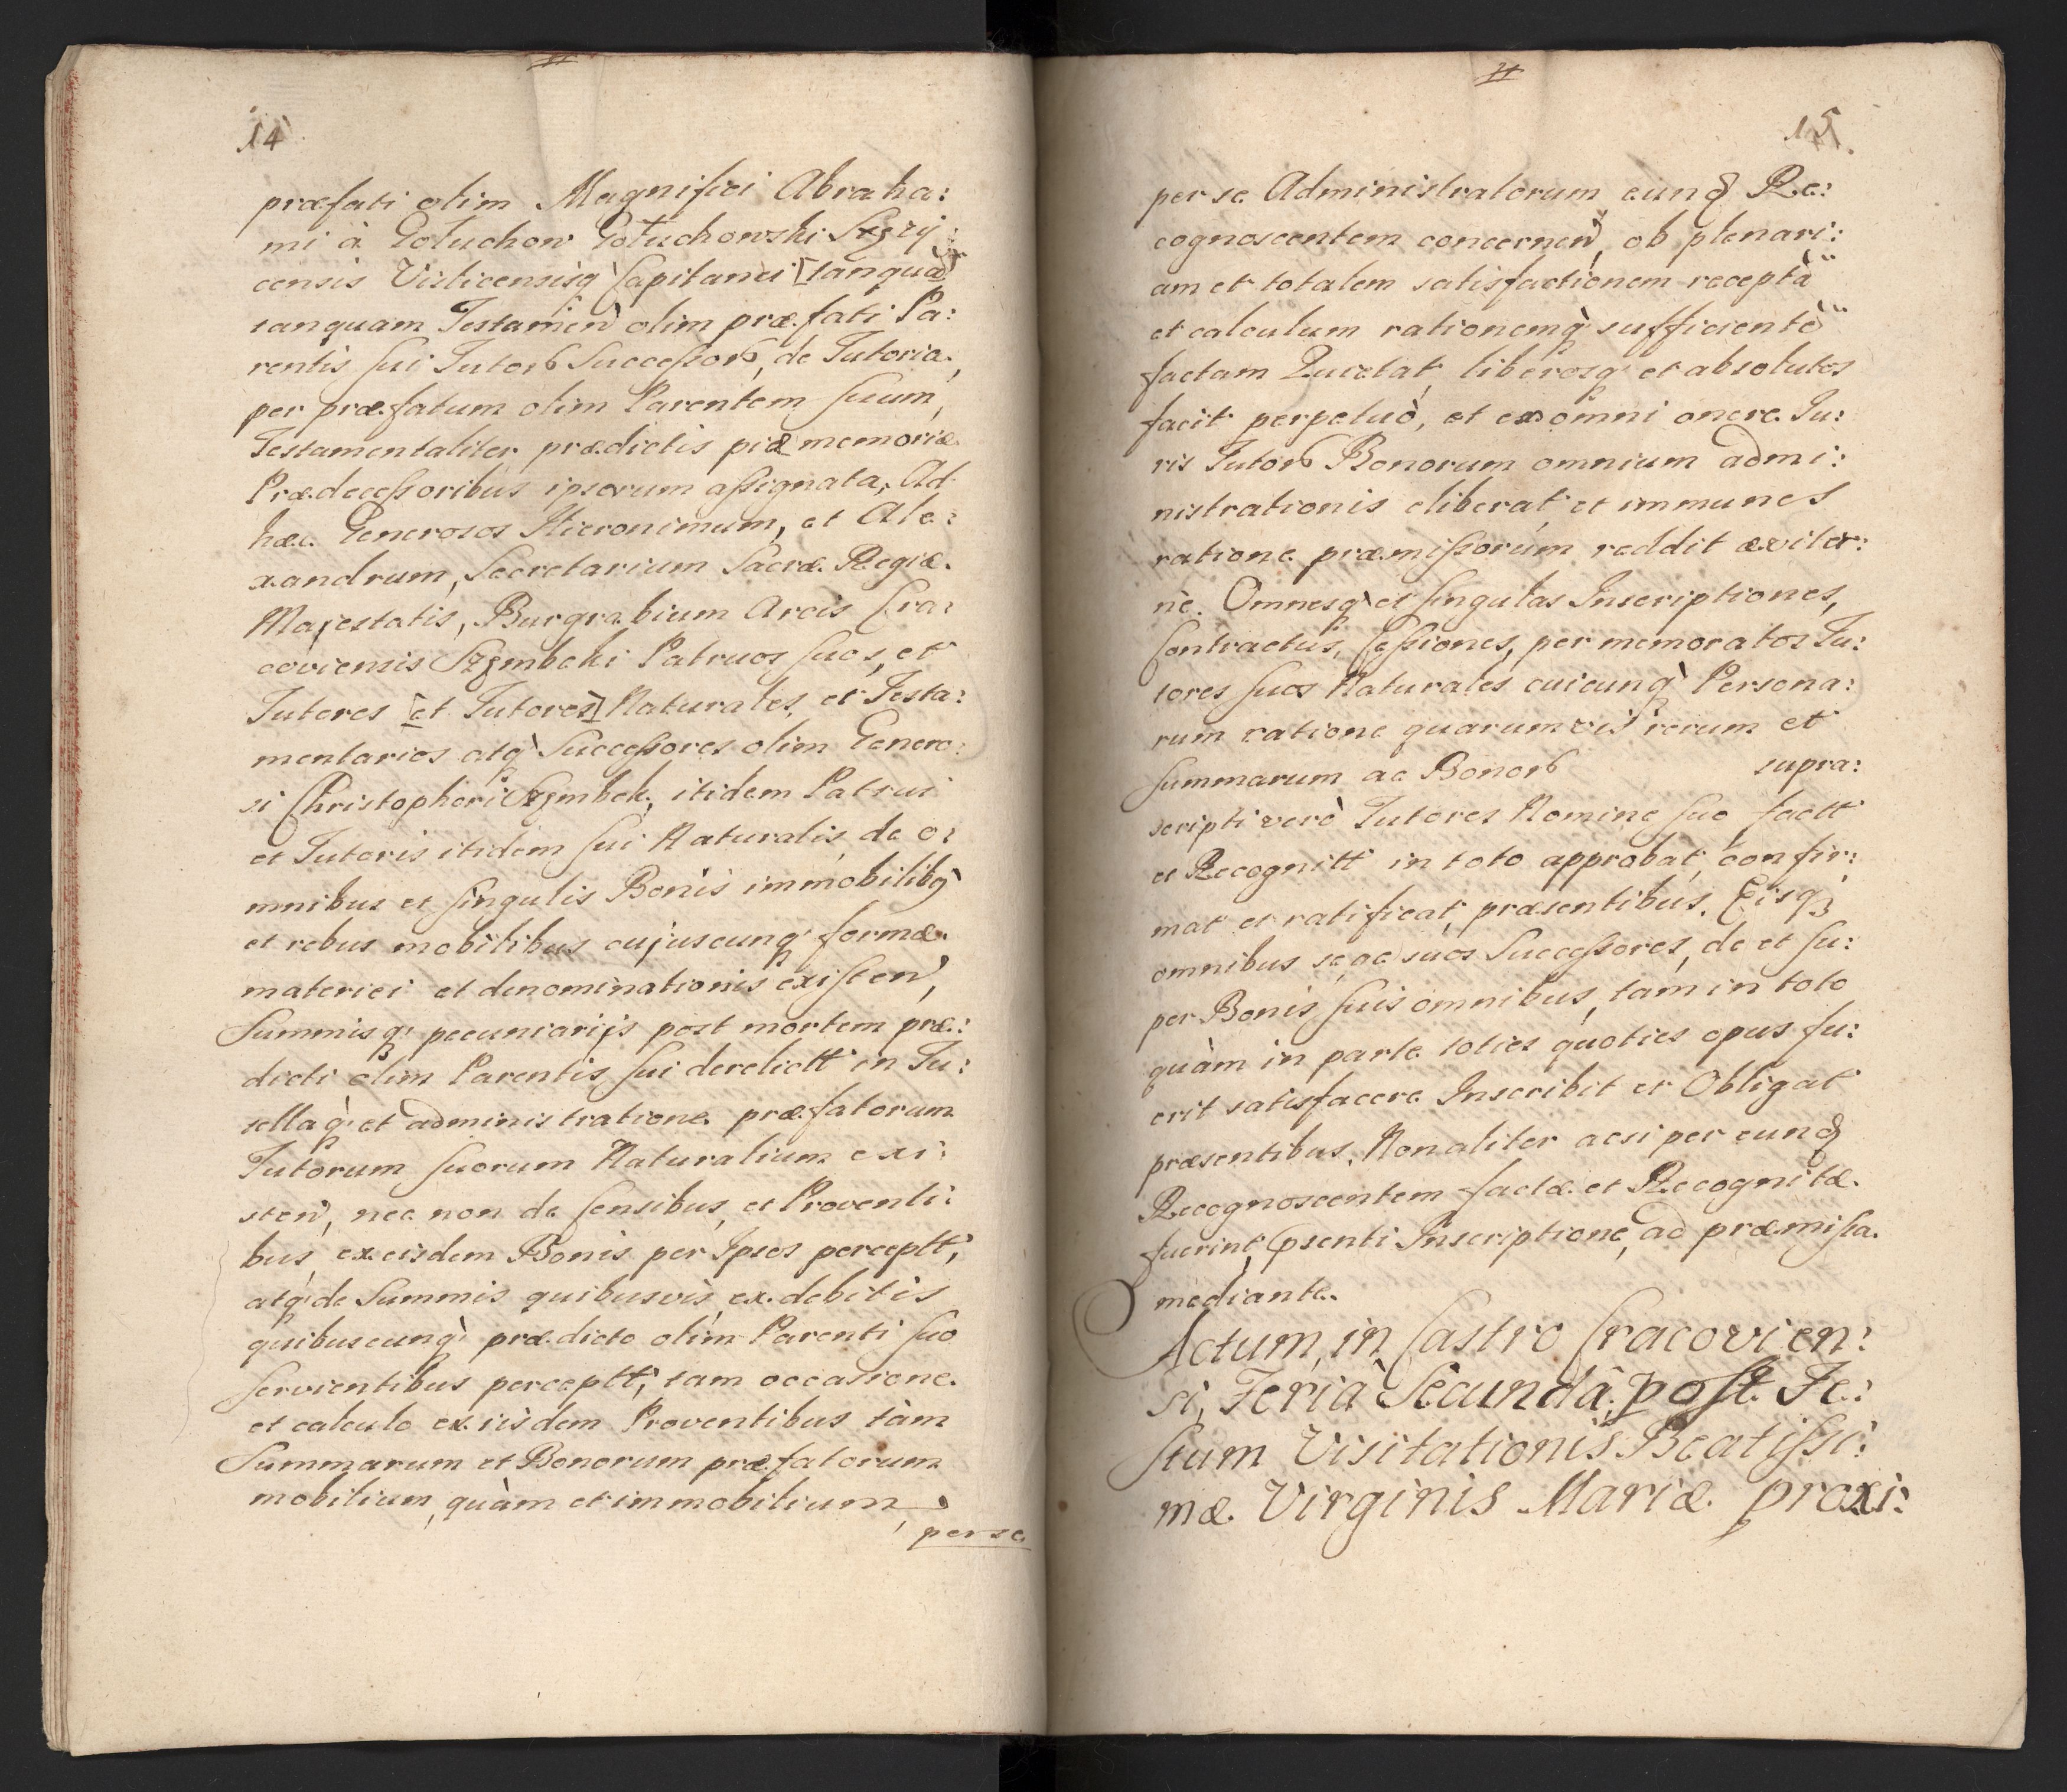 14
præfati olim Magnifici Abraha:
mi à Gołuchow Gołuchowski Stęży:
censis Visticensisq̀ Capitanei [tanquã]
tanquam Testamen̄ olim præfati Pa:
rentis sui Tutor Successor, de Tutoria,
per præfatum olim Parentem suum,
Testamentaliter prædictis piæ memoriæ
Prædecessoribus ipsorum assignata, Ad
hæc Generosos Hieronimum, et Ale:
xandrum, Secretarium Sacræ Regiæ
Majestatis, Burgrabium Arcis Cra:
coviensis Szembeki Patruos suos, et
Tutores [et Tutores] Naturales, et Testa:
mentarios atq̀ Successores olim Genero:
si Christophori Szembek, itidem Patrui
et Tutoris itidem sui Naturalis, de o:
mnibus et singulis Bonis immobilibq̀
et rebus mobilibus cujuscunq̀ formæ
materiei et denominationis existen̄,
Summisq̀ pecuniarijs post mortem præ:
dicti olim Parentis sui derelictt in Tu:
tellaq̀ et administratione præfatorum
Tutorum suorum Naturalium exi:
sten̄, nec non de Censibus, et Proventi:
bus, ex eisdem Bonis per Ipsos perceptt,
atq̀ de Summis quibusvis, ex debitis
quibuscunq̀ prædicto olim Parenti suo
servientibus perceptt, tam occasione
et calculo ex iisdem Proventibus tàm
Summarum et Bonorum præfatorum
mobilium, quàm et immobilium,
per se
15.
per se Administratorum eunđ Re:
cognoscentem concernen̄, ob plenari:
am et totalem satisfactionem receptã
et calculum rationemq̀ sufficientẽ
factam Quietat, liberosq̀ et absolutos
facit perpetuò, et ex omni onere Ju:
ris Tutor Bonorum omnium admi:
nistrationis eliberat, et immunes
ratione præmissorum reddit æviter:
nè. Omnesq̀ et singulas Inscriptiones,
Contractus, Cessiones, per memoratos Tu:
tores suos Naturales cuicunq̀ Persona:
rum ratione quarumvis rerum et
Summarum ac Bonor supra:
scripti verò Tutores Nomine suo factt
et Recognitt in toto approbat, confir:
mat et ratificat, præsentibus. Eisq̀
omnibus se, ac suos Successores, de et su:
per Bonis suis omnibus, tam in toto
quàm in parte toties quoties opus fu:
erit satisfacere Inscribit et Obligat
præsentibus. Non aliter acsi per eunđ
Recognoscentem factæ et Recognitæ
fuerint, p̄senti Inscriptione, ad præmissa
mediante.
Actum in Castro Cracovien:
si, Feriâ Secundâ post Fe:
stum Visitationis Beatissi:
mæ Virginis Mariæ proxi: